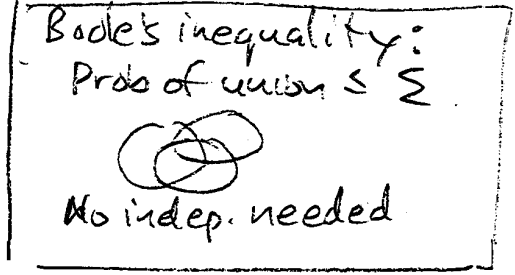 Boole's inequality:
Prob of union ≤ Σ
No indep. needed